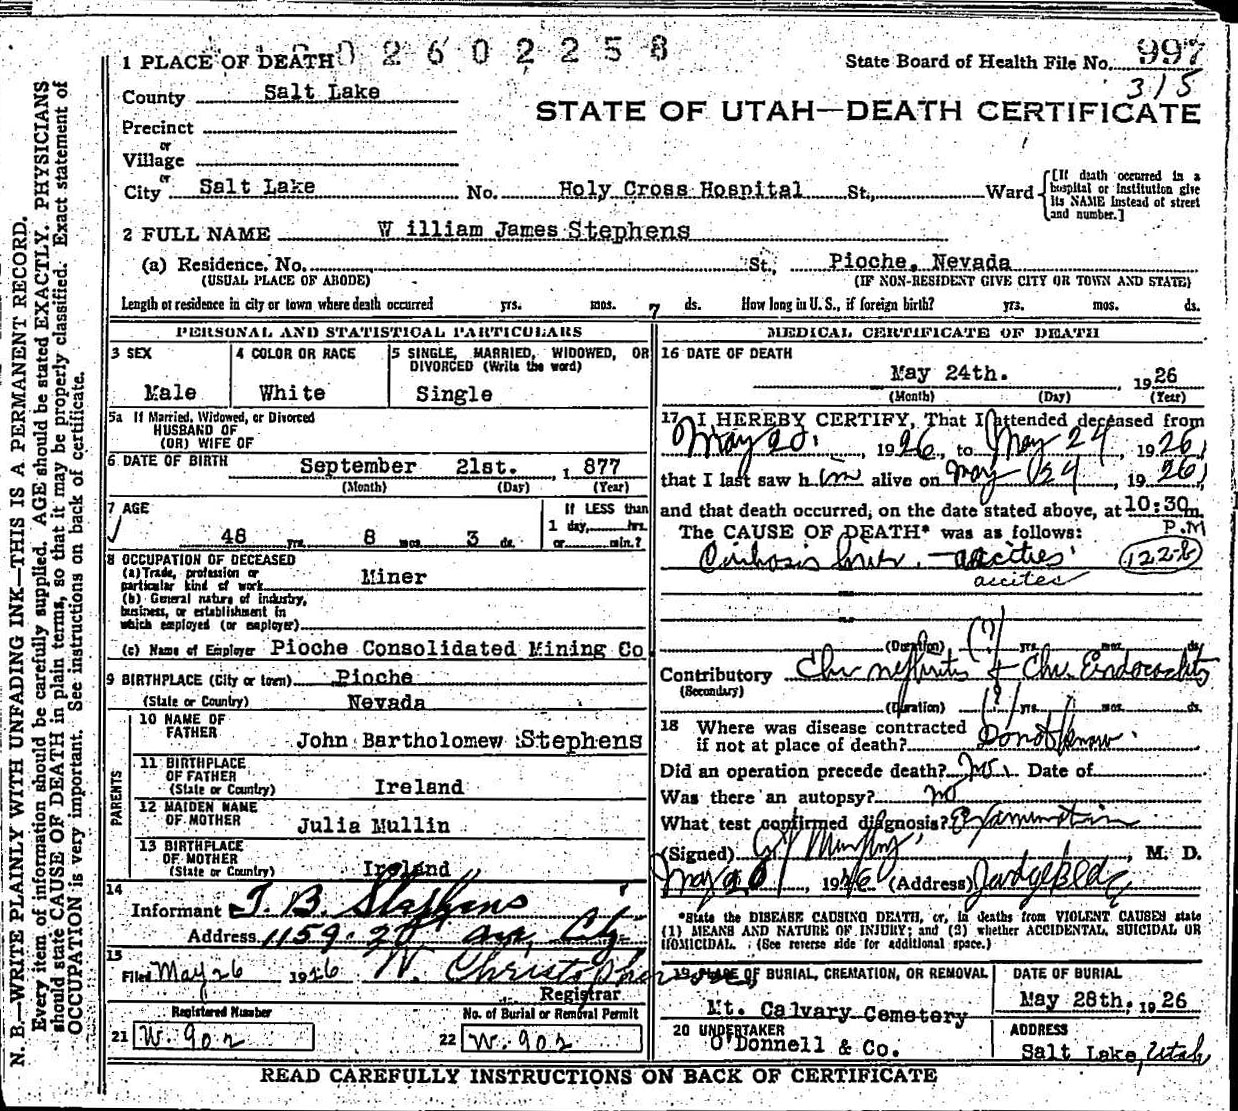 N. B.—WRITE PLAINLY WITH UNFADING INK—THIS IS A PERMANENT RECORD.
Every item of information should be carefully supplied. AGE should be stated EXACTLY. PHYSICIANS
should state CAUSE OF DEATH in plain terms, so that it may be properly classified. Exact statement of
OCCUPATION is very important. See instructions on back of certificate.
0 2 6 0 2 2 5 8
1 PLACE OF DEATH
State Board of Health File No. 997
315
County Salt Lake
STATE OF UTAH—DEATH CERTIFICATE
Precinct
or
Village
or
City Salt Lake No. Holy Cross Hospital St., Ward
[If death occurred in a
hospital or institution give
its NAME instead of street
and number.]
2 FULL NAME W illiam James Stephens
(a) Residence. No. St., Pioche, Nevada
(USUAL PLACE OF ABODE) (IF NON-RESIDENT GIVE CITY OR TOWN AND STATE)
Length of residence in city or town where death occurred yrs. mos. 7 ds. How long in U. S., if foreign birth? yrs. mos. ds.
PERSONAL AND STATISTICAL PARTICULARS
3 SEX
Male
4 COLOR OR RACE
White
5 SINGLE, MARRIED, WIDOWED, OR
DIVORCED (Write the word)
Single
5a If Married, Widowed, or Divorced
HUSBAND OF
(OR) WIFE OF
6 DATE OF BIRTH September 21st. , 1 877
(Month) (Day) (Year)
7 AGE
48 yrs. 8 mos. 3 ds.
If LESS than
1 day, hrs.
or min.?
8 OCCUPATION OF DECEASED
(a) Trade, profession or
particular kind of work Miner
(b) General nature of industry,
business, or establishment in
which employed (or employer)
(c) Name of Employer Pioche Consolidated Mining Co
9 BIRTHPLACE (City or town) Pioche
(State or Country) Nevada
PARENTS
10 NAME OF
FATHER
John Bartholomew Stephens
11 BIRTHPLACE
OF FATHER
(State or Country) Ireland
12 MAIDEN NAME
OF MOTHER
Julia Mullin
13 BIRTHPLACE
OF MOTHER
(State or Country) Ireland
14
Informant J. B. Stephens
Address 1159-20 City
15
Filed May 26 1926 W. Christopherson
Registrar
Registered Number
21 W. 902
No. of Burial or Removal Permit
22 W. 902
MEDICAL CERTIFICATE OF DEATH
16 DATE OF DEATH
May 24th. , 1926
(Month) (Day) (Year)
17 I HEREBY CERTIFY, That I attended deceased from
May 20, 1926, to May 24, 1926,
that I last saw him alive on May 24, 1926,
and that death occurred, on the date stated above, at 10:30 m.
P.M
The CAUSE OF DEATH* was as follows:
Cirrhosis liver. — ascities 122-b
ascites
(Duration) (?) yrs. mos. ds.
Contributory Chr nephritis + Chr. Endocarditis
(Secondary)
(Duration) (?) yrs. mos. ds.
18 Where was disease contracted
if not at place of death? Do not know.
Did an operation precede death? No. Date of
Was there an autopsy? no
What test confirmed diagnosis? Examination
(Signed) , M. D.
May 1926 (Address) Judge Bldg
*State the DISEASE CAUSING DEATH, or, in deaths from VIOLENT CAUSES state
(1) MEANS AND NATURE OF INJURY; and (2) whether ACCIDENTAL, SUICIDAL OR
HOMICIDAL. (See reverse side for additional space.)
19 PLACE OF BURIAL, CREMATION, OR REMOVAL
Mt. Calvary Cemetery
DATE OF BURIAL
May 28th. 1926
20 UNDERTAKER
O'Donnell & Co.
ADDRESS
Salt Lake, Utah
READ CAREFULLY INSTRUCTIONS ON BACK OF CERTIFICATE